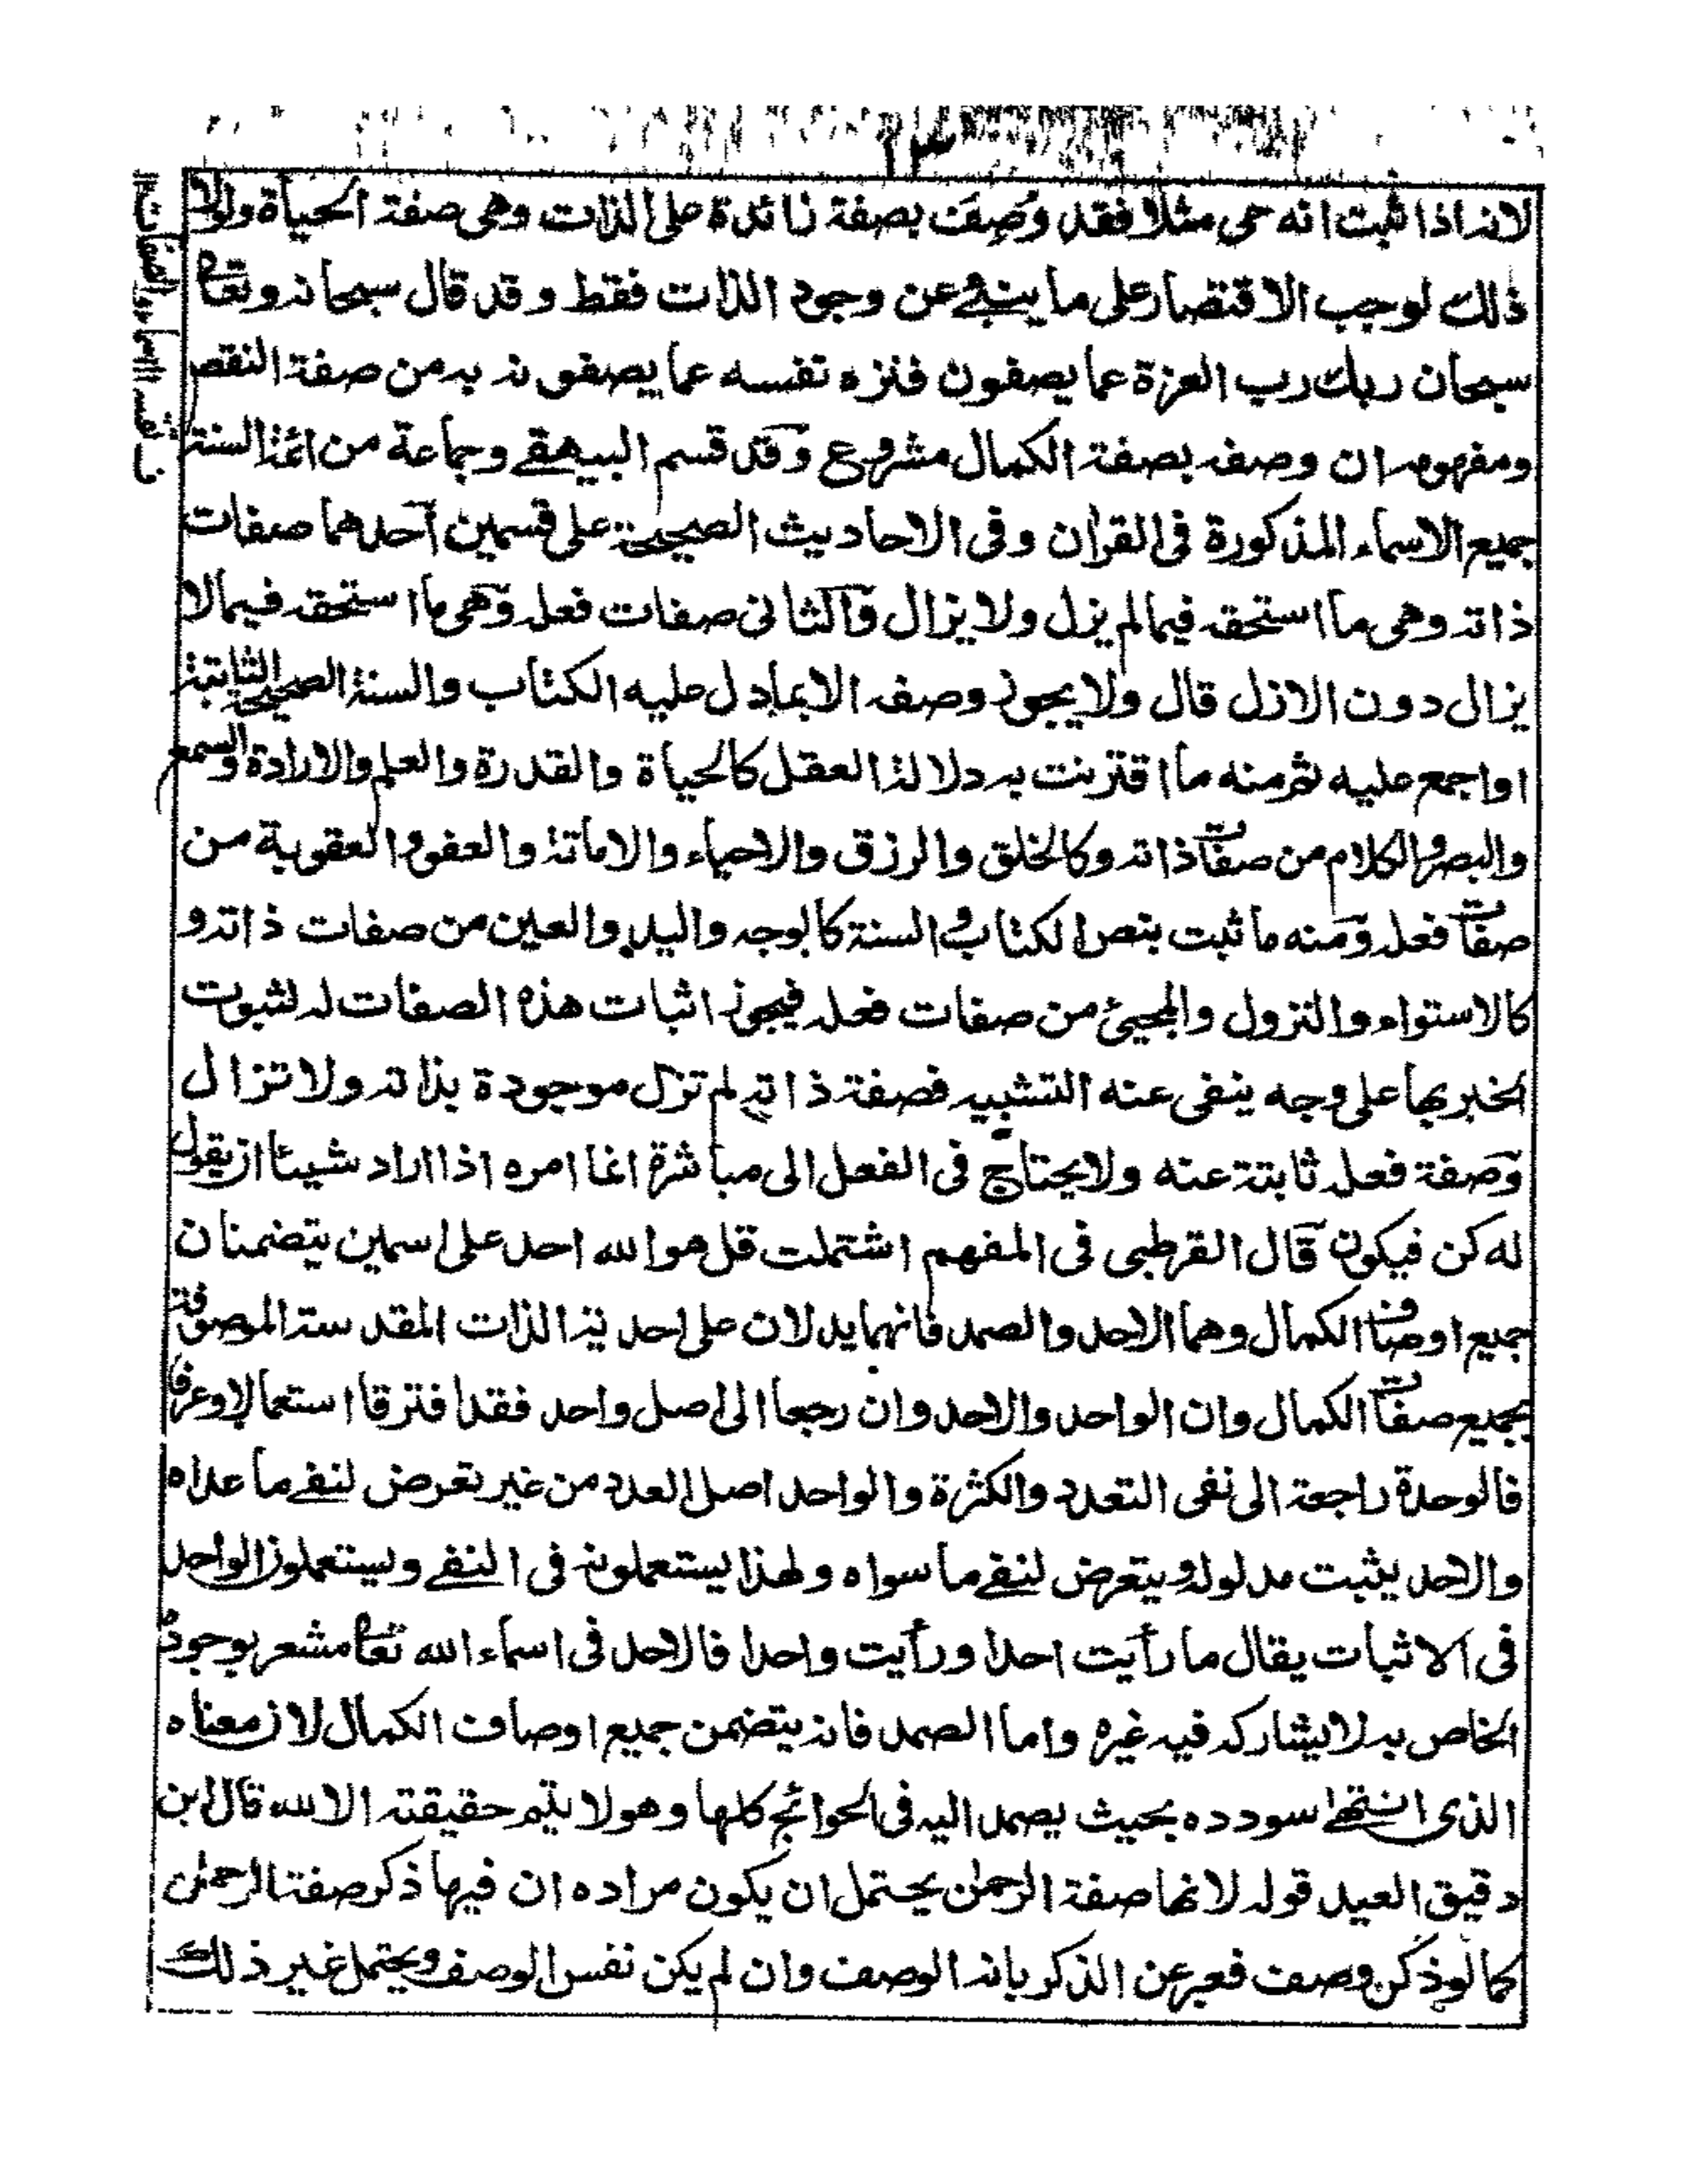 ١٣
لانه اذا ثبت انه حى مثلا فقد وُصِفَ بصفة زائدة على الذات وهى صفة الحياة ولولا
ذلك لوجب الاقتصار على ما ينبئ عن وجود الذات فقط وقد قال سبحانه وتعالى
سبحان ربك رب العزة عما يصفون فنزه نفسه عما يصفونه به من صفة النقص
ومفهومه ان وصفه بصفة الكمال مشروع وقد قسم البيهقے وجماعة من ائمة السنة
جميع الاسماء المذكورة فى القرأن وفى الاحاديث الصحيحة على قسمين احدهما صفات
ذاته وهى ما استحقه فيما لم يزل ولا يزال والثانى صفات فعله وهى ما استحقه فيما لا
يزال دون الازل قال ولا يجوز وصفه الا بما دل عليه الكتاب والسنة الصحيحة الثابتة
او اجمع عليه ثم منه ما اقترنت به دلالة العقل كالحياة والقدرة والعلم والارادة والسمع
والبصر والكلام من صفات ذاته وكالخلق والرزق والاحياء والاماتة والعفو والعقوبة من
صفات فعله ومنه ما ثبت بنص الكتاب والسنة كالوجه واليد والعين من صفات ذاته و
كالاستواء والنزول والمجيئ من صفات فعله فيجوز اثبات هذه الصفات له لثبوت
الخبر بها على وجه ينفى عنه التشبيه فصفة ذاته لم تزل موجودة بذاته ولا تزال
وصفة فعله ثابتة عنه ولا يحتاج فى الفعل الى مباشرة انما امره اذا اراد شيئا ان يقول
له كن فيكون قال القرطبى فى المفهم اشتملت قل هو الله احد على اسمين يتضمنان
جميع اوصاف الكمال وهما الاحد والصمد فانهما يدلان على احدية الذات المقدسة الموصوفة
بجميع صفات الكمال وان الواحد والاحد وان رجعا الى اصل واحد فقد افترقا استعمالا وعرفا
فالوحدة راجعة الى نفى التعدد والكثرة والواحد اصل العدد من غير تعرض لنفے ما عداه
والاحد يثبت مدلوله ويتعرض لنفے ما سواه ولهذا يستعملونه فى النفے ويستعملون الواحد
فى الاثبات يقال ما رأيت احدا ورأيت واحدا فالاحد فى اسماء الله تعالى مشعر بوجوده
الخاص به لا يشاركه فيه غيره واما الصمد فانه يتضمن جميع اوصاف الكمال لان معناه
الذى انتهى سودده بحيث يصمد اليه فى الحوائج كلها وهو لا يتم حقيقته الا لله قال ابن
دقيق العيد قوله لانها صفة الرحمٰن يحتمل ان يكون مراده ان فيها ذكر صفة الرحمٰن
كما لو ذكر وصف فعبر عن الذكر بانه الوصف وان لم يكن نفس الوصف ويحتمل غير ذلك